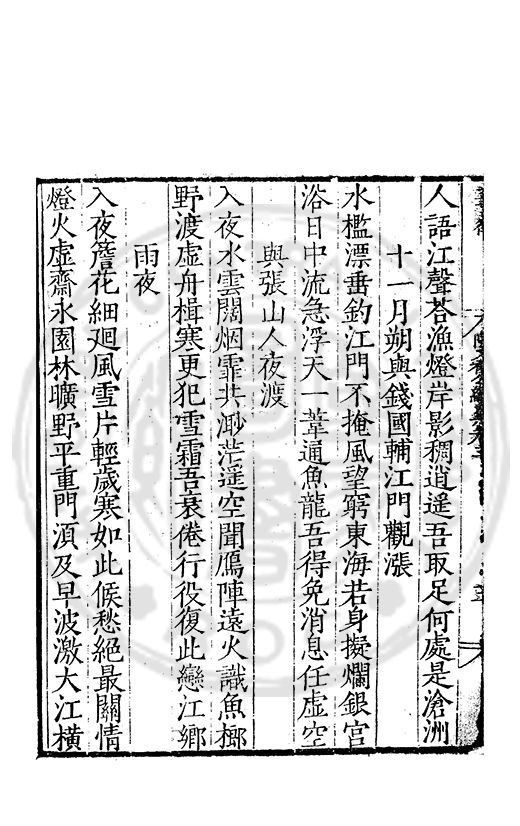 人語江聲荅漁燈岸影稠逍遥吾取足何處是滄洲
十一月朔與錢國輔江門觀漲
水檻漂垂釣江門不掩風望窮東海若身擬爛銀宮
浴日中流急浮天一葦通魚龍吾得免消息任虛空
與張山人夜渡
入夜水雲闊烟霏共渺茫遥空聞鴈陣遠火識魚榔
野渡虛舟楫寒更犯雪霜吾衰倦行役復此戀江鄉
雨夜
入夜簷花細廻風雪片輕歲寒如此候愁絕最關情
燈火虛齋永園林曠野平重門須及早波激大江橫